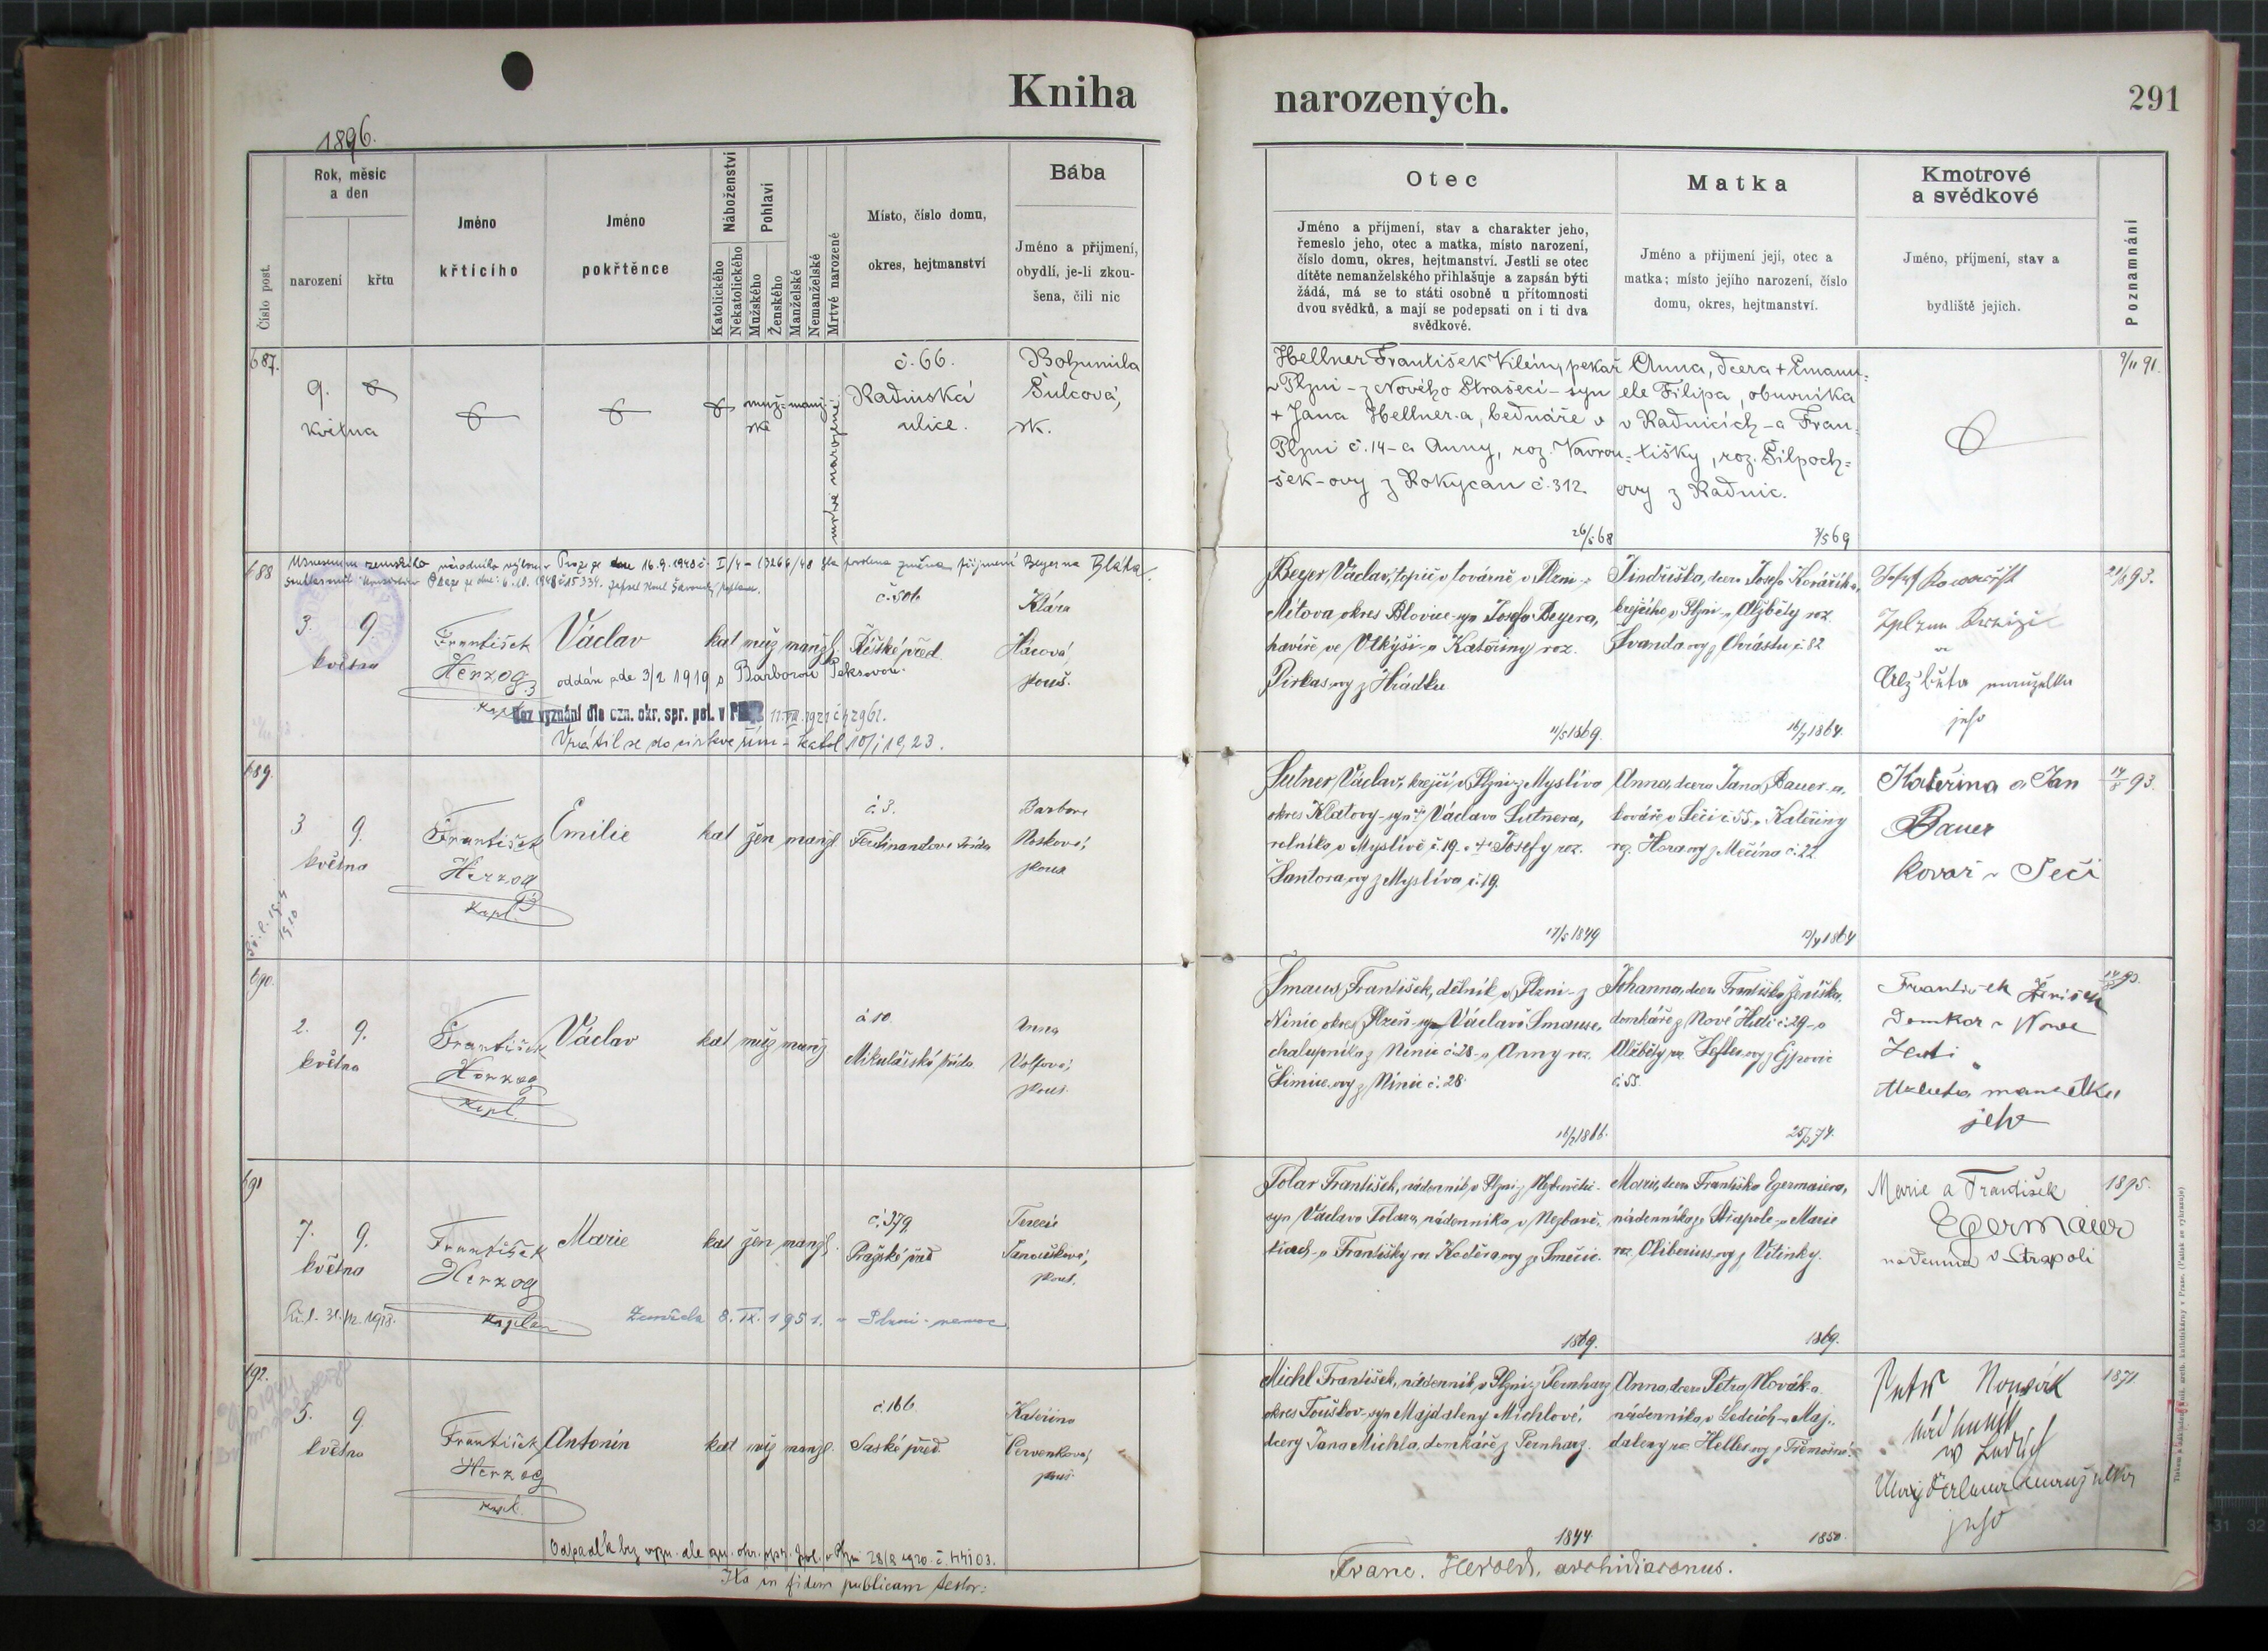 Kniha narozených.
291
1896.
Číslo post.
Rok, měsíc
a den
narození
křtu
Jméno
křtícího
Jméno
pokřtěnce
Náboženství
Katolického
Nekatolického
Pohlaví
Mužského
Ženského
Manželské
Nemanželské
Mrtvě narozené
Místo, číslo domu,
okres, hejtmanství
Bába
Jméno a příjmení,
obydlí, je-li zkou-
šena, čili nic
Otec
Jméno a příjmení, stav a charakter jeho,
řemeslo jeho, otec a matka, místo narození,
číslo domu, okres, hejtmanství. Jestli se otec
dítěte nemanželského přihlašuje a zapsán býti
žádá, má se to státi osobně u přítomnosti
dvou svědků, a mají se podepsati on i ti dva
svědkové.
Matka
Jméno a příjmení její, otec a
matka; místo jejího narození, číslo
domu, okres, hejtmanství.
Kmotrové
a svědkové
Jméno, příjmení, stav a
bydliště jejich.
Poznamnání
687.
9.
května
muž-
ské
manž.
mrtvě narozené
č. 66.
Radinská
ulice.
Bohumila
Šulcová,
zk.
Hellner František Vilém, pekař
v Plzni - z Nového Strašecí - syn
+ Jana Hellner-a, bednáře v
Plzni č. 14 - a Anny, roz. Vavrou-
šek-ovy z Rokycan č. 312.
Anna, dcera + Emanu-
ele Filipa, obuvníka
v Radnicích - a Fran-
tišky, roz. Šilpoch-
ovy z Radnic.
688
16.9.1948 č. I/4 - 13266/48 příjmení Beyer na Bláha.
3. 9.
května
František
Herzog
kapl.
Václav
kat muž manžl.
č. 506
před
Klára
zkouš.
oddán dle 3/2 1919 s Barborou Peksovou.
Bez vyznání dle ozn. okr. spr. pol. v
Vrátil se do církve řím-katol 10/1 1923.
Beyer Václav, topič v továrně v Plzni - z
Mítova okres Blovice - syn Josefa Beyera,
havíře ve Vlkýši - a Kateřiny roz.
Pirkas-ovy z Hrádku
11/5 1869.
Jindřiška, dcera Josefa Kováříka,
krejčího v Plzni - a Alžběty roz.
Švanda-ovy z Chrástu č. 82
16/7 1864.
Alžběta manželka
jeho
689.
3 9.
května
František
Herzog
kapl.
Emilie
kat žen manžl.
č. 3.
Ferdinandova třída
Barbora
Nosková,
zkouš
Sutner Václav, krejčí v Plzni - z Myslíva
okres Klatovy - syn Václava Sutnera,
rolníka v Myslívě č. 19 - a + Josefy roz.
Šantora-ovy z Myslíva č. 19.
17/5 1849
Anna, dcera Jana Bauer-a,
kováře v Sečí č. 55 - a Kateřiny
roz. Hora-ovy z Měčína č. 22
Kateřina a Jan
Bauer
kovář v Sečí
690.
2. 9.
května
František
Herzog
kapl.
Václav
kat muž manž
č 10.
Mikulášská třída
Anna
Volfová,
zkouš.
Šmaus František, dělník v Plzni - z
Ninic okres Plzeň - syn Václava Šmause,
chalupníka z Ninic č. 28 - a Anny roz.
Šimice-ovy z Ninic č. 28.
Johanna, dcera Františka Jeníška,
domkáře z Nové Hutě č. 29 - a
Alžběty roz. Šefler-ovy z Ejpovic
č. 55.
25/5 74.
František Jeníšek
Domkář v Nové
Huti
Alžběta manželka
jeho
691
7. 9.
května
František
Herzog
kaplan
Marie
kat žen manžl.
č. 379
Pražské před
Terezie
Janoušková,
zkouš.
Zemřela 8. IX. 1951. v Plzni - nemoc.
Tolar František, nádenník v Plzni
syn Václava Tolara, nádenníka v
a Františky roz. Koděra-ovy ze Smečic.
1869.
Marie, dcera Františka Egermaiera,
nádenníka ze Střapole - a Marie
roz. Oliberius-ovy z Vitinky.
1869.
Marie a František
Egermaier
v Strapoli
1895.
692.
5. 9.
května
František
Herzog
kapl.
Antonín
kat muž manžl.
č. 166.
Saské před
Kateřina
Červenková,
zkouš.
Michl František, nádenník v Plzni - z Pernharz
okres Touškov - syn Majdaleny Michlové,
dcery Jana Michla, domkáře z Pernharz.
1844.
Anna, dcera Petra Novák-a
nádenníka v Ledcích - a Maj-
daleny roz. Heller-ovy z Třemošné.
1850.
Petr Novák
nádenník
v Ledcích
manželka
jeho
1871.
Odpadl k bez vyzn. dle ozn. okr. spr. pol. v Plzni 28/8 1920.
Ita in fidem publicam testor:
Franc. Herold, archidiaconus.